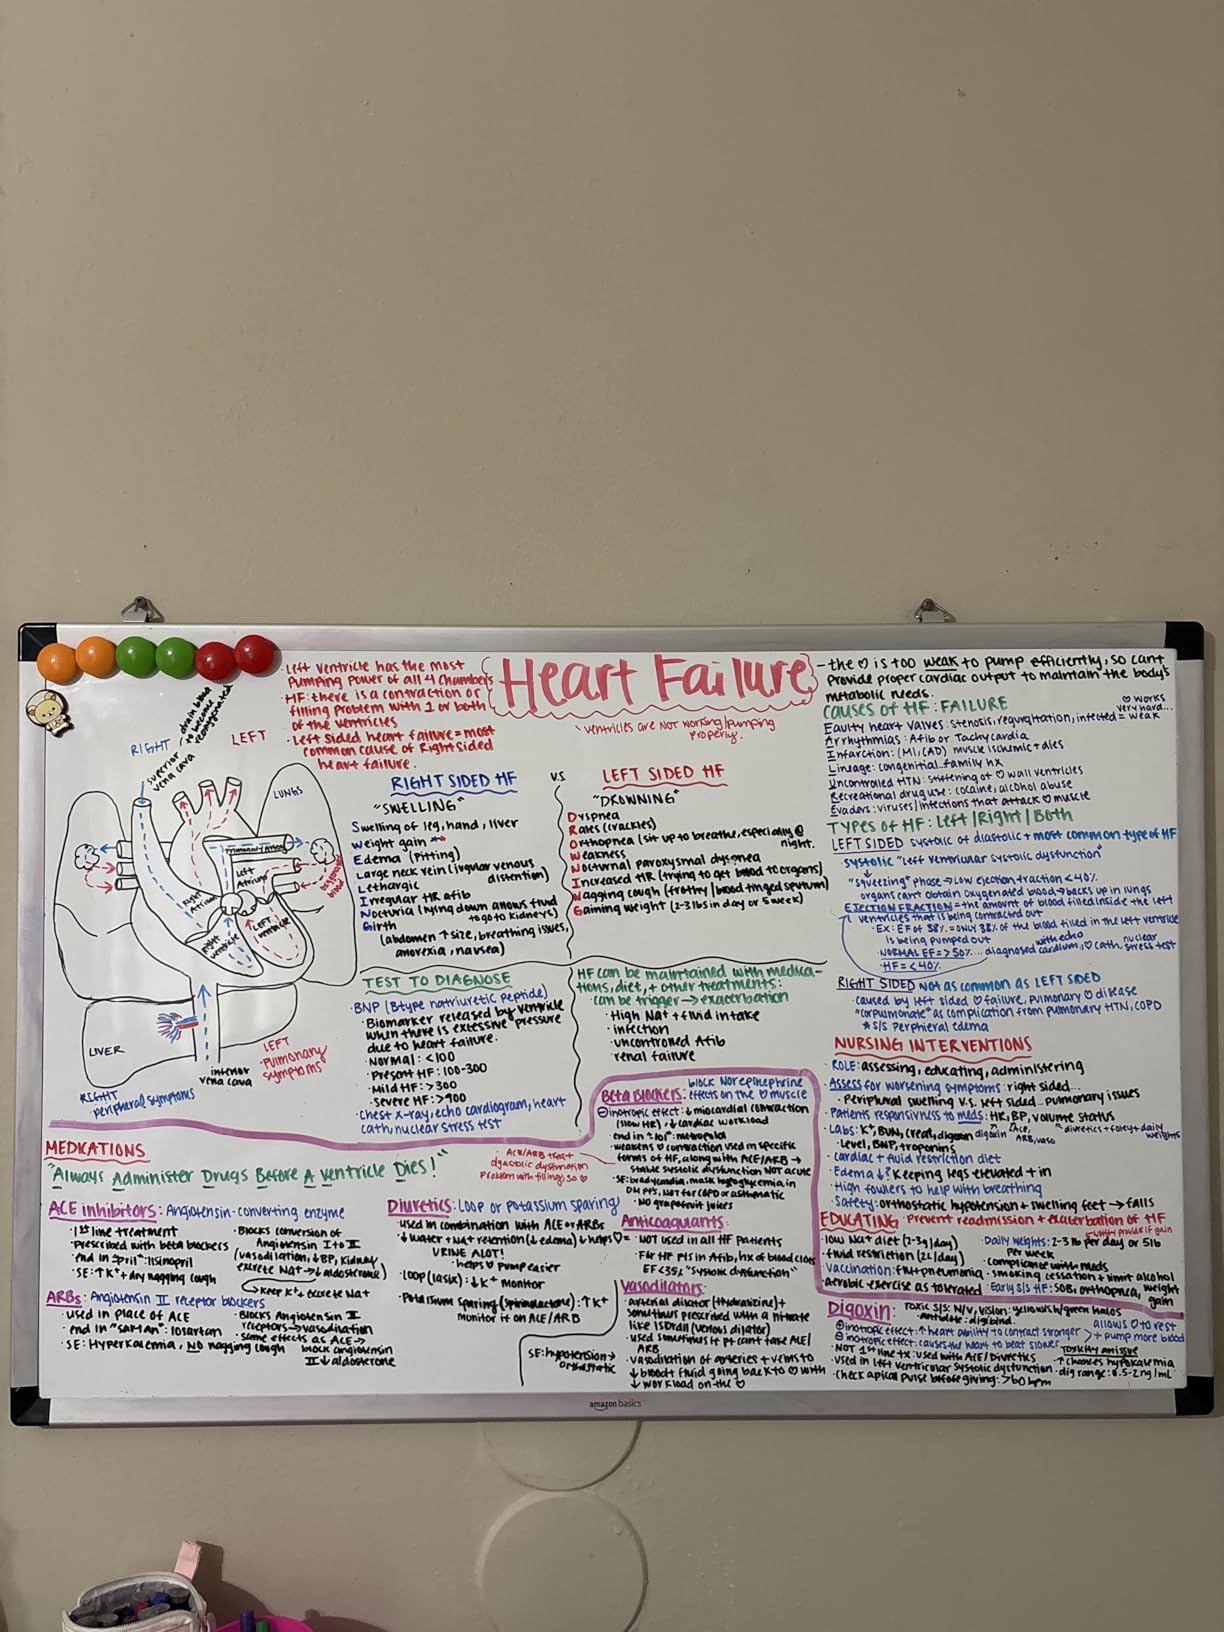 Heart Failure
ventricles are NOT working/pumping
properly.
· Left ventricle has the most
pumping power of all 4 chambers
· HF: there is a contraction or
filling problem with 1 or both
of the ventricles
· Left sided heart failure = most
common cause of Right sided
heart failure.
- the ♡ is too weak to pump efficiently, so cant
provide proper cardiac output to maintain the body's
metabolic needs.
RIGHT
LEFT
superior
vena cava
LUNGS
Pulmonary Artery
Left
Atrium
Right
Atrium
Right
ventricle
LEFT
ventricle
LIVER
inferior
vena cava
LEFT
·Pulmonary
symptoms
RIGHT
peripheral symptoms
RIGHT SIDED HF
"SWELLING"
Swelling of leg, hand, liver
Weight gain
Edema (pitting)
Large neck vein (jugular venous
distention)
Lethargic
Irregular HR afib
Nocturia (lying down allows fluid
to go to kidneys)
Girth
(abdomen ↑ size, breathing issues,
anorexia, nausea)
V.S
LEFT SIDED HF
"DROWNING"
Dyspnea
Rales (crackles)
Orthopnea (sit up to breathe, especially @
night.
Weakness
Nocturnal paroxysmal dyspnea
Increased HR (trying to get blood to organs)
Nagging cough (frothy/blood tinged sputum)
Gaining weight (2-3 lbs in day or 5 week)
TEST TO DIAGNOSE
BNP (Btype natriuretic peptide)
· Biomarker released by ventricle
when there is excessive pressure
due to heart failure.
· Normal: <100
· Present HF: 100-300
· Mild HF: >300
· severe HF: >900
· Chest x-ray, echo cardiogram, heart
cath, nuclear stress test
HF can be maintained with medica-
tions, diet, + other treatments:
· can be trigger → exacerbation
· High Na+ + fluid intake
· infection
· uncontrolled Afib
· renal failure
CAUSES OF HF: FAILURE
♡ works
very hard...
Faulty heart valves: stenosis, regurgitation, infected = weak
Arrhythmias: Afib or Tachycardia
Infarction: (MI, CAD) muscle ischemic + dies
Lineage: congenital..family hx
Uncontrolled HTN: stiffening of ♡ wall ventricles
Recreational drug use: cocaine, alcohol abuse
Evaders: viruses/infections that attack ♡ muscle
TYPES OF HF: Left/Right/Both
LEFT SIDED systolic of diastolic + most common type of HF
systolic "left ventricular systolic dysfunction"
"squeezing" phase → low ejection fraction <40%
organs can't obtain oxygenated blood → backs up in lungs
EJECTION FRACTION = the amount of blood filled inside the left
ventricles that is being contracted out
· Ex: EF of 38% = only 38% of the blood filled in the left ventricle
is being pumped out
· NORMAL EF => 50%... diagnosed with echo
cardium, ♡ cath, nuclear
stress test
· HF = <40%
RIGHT SIDED NOT as common as LEFT SIDED
· caused by left sided ♡ failure, pulmonary ♡ disease
"corpulmonale" as complication from pulmonary HTN, COPD
* S/S Perphieral edema
NURSING INTERVENTIONS
· ROLE: assessing, educating, administering
· Assess for worsening symptoms: right sided...
Peripheral swelling v.s. left sided..pulmonary issues
· Patients responsivness to meds: HR, BP, volume status
· Labs: K+, BUN, Creat, digoxin
level, BNP, troponins
· cardiac + fluid restriction diet
· Edema ↓? Keeping legs elevated + in
· High fowlers to help with breathing
· Safety: orthostatic hypotension + swelling feet → falls
EDUCATING Prevent readmission + exacerbation of HF
· low Na+ diet (2-3g/day)
· fluid restriction (2L/day)
· Vaccination: flu + pneumonia
· aerobic exercise as tolerated
notify provider if gain
· Daily weights: 2-3 lb per day or 5lb
per week
· compliance with meds
· smoking cessation + limit alcohol
· Early S/S HF: SOB, orthopnea, weight
gain
MEDICATIONS
"Always Administer Drugs Before A Ventricle Dies!"
ACE inhibitors: Angiotensin-converting enzyme
· 1st line treatment
· Prescribed with beta blockers
· end in "pril": lisinopril
· SE: ↑K+ + dry nagging cough
· Blocks conversion of
Angiotensin I to II
(vasodilation, ↓BP, kidney
excrete Na+ → ↓ aldosterone)
Keep K+, excrete Na+
ARBs: Angiotensin II receptor blockers
· used in place of ACE
· end in "sartan": losartan
· SE: Hyperkalemia, NO nagging cough
· Blocks Angiotensin II
receptors → vasodilation
· same effects as ACE →
block angiotensin
II ↓ aldosterone
Diuretics: Loop or potassium sparing
· used in combination with ACE or ARBs
· ↓ water + Na+ retention (↓ edema) ↓ helps ♡ =
URINE ALOT!
helps ♡ pump easier
· Loop (lasix): ↓K+ monitor
· Potassium sparing (spirinolactone): ↑K+
monitor it on ACE/ARB
SE: hypotension →
orthostatic
Beta Blockers: block Norepinephrine
effects on the ♡ muscle
⊖ inotropic effect: ↓ miocardial contraction
(slow HR), ↓ cardiac workload
· end in "lol": metropolol
· weakens ♡ contraction used in specific
forms of HF, along with ACE/ARB →
stable systolic dysfunction NOT acute
· SE: bradycardia, mask hypoglycemia in
DM pts, not for COPD or asthmatic
· NO grapefruit juices
Anticoaguants:
· NOT used in all HF patients
· For HF pts in Afib, hx of blood clots
EF <35% "systolic dysfunction"
Vasodilators:
· arterial dilator (Hydralizine) +
sometimes prescribed with a nitrate
like ISDrdil (venous dilator)
· used sometimes if pt cant take ACE/
ARB
· vasodilation of arteries + veins to
↓ blood + fluid going back to ♡ with
↓ workload on the ♡
Digoxin: Toxic S/S: N/V, vision: yellowish/green halos
· antidote: digibind
⊕ inotropic effect: ↑ heart ability to contract stronger
⊖ inotropic effect: causes the heart to beat slower
allows ♡ to rest
+ pump more blood
· NOT 1st line tx: used with ACE/Diuretics
· used in left ventricular systolic dysfunction
· Check apical pulse before giving: >60 bpm
↑ chances hypokalemia
· dig range: 0.5-2 ng/mL
amazon basics